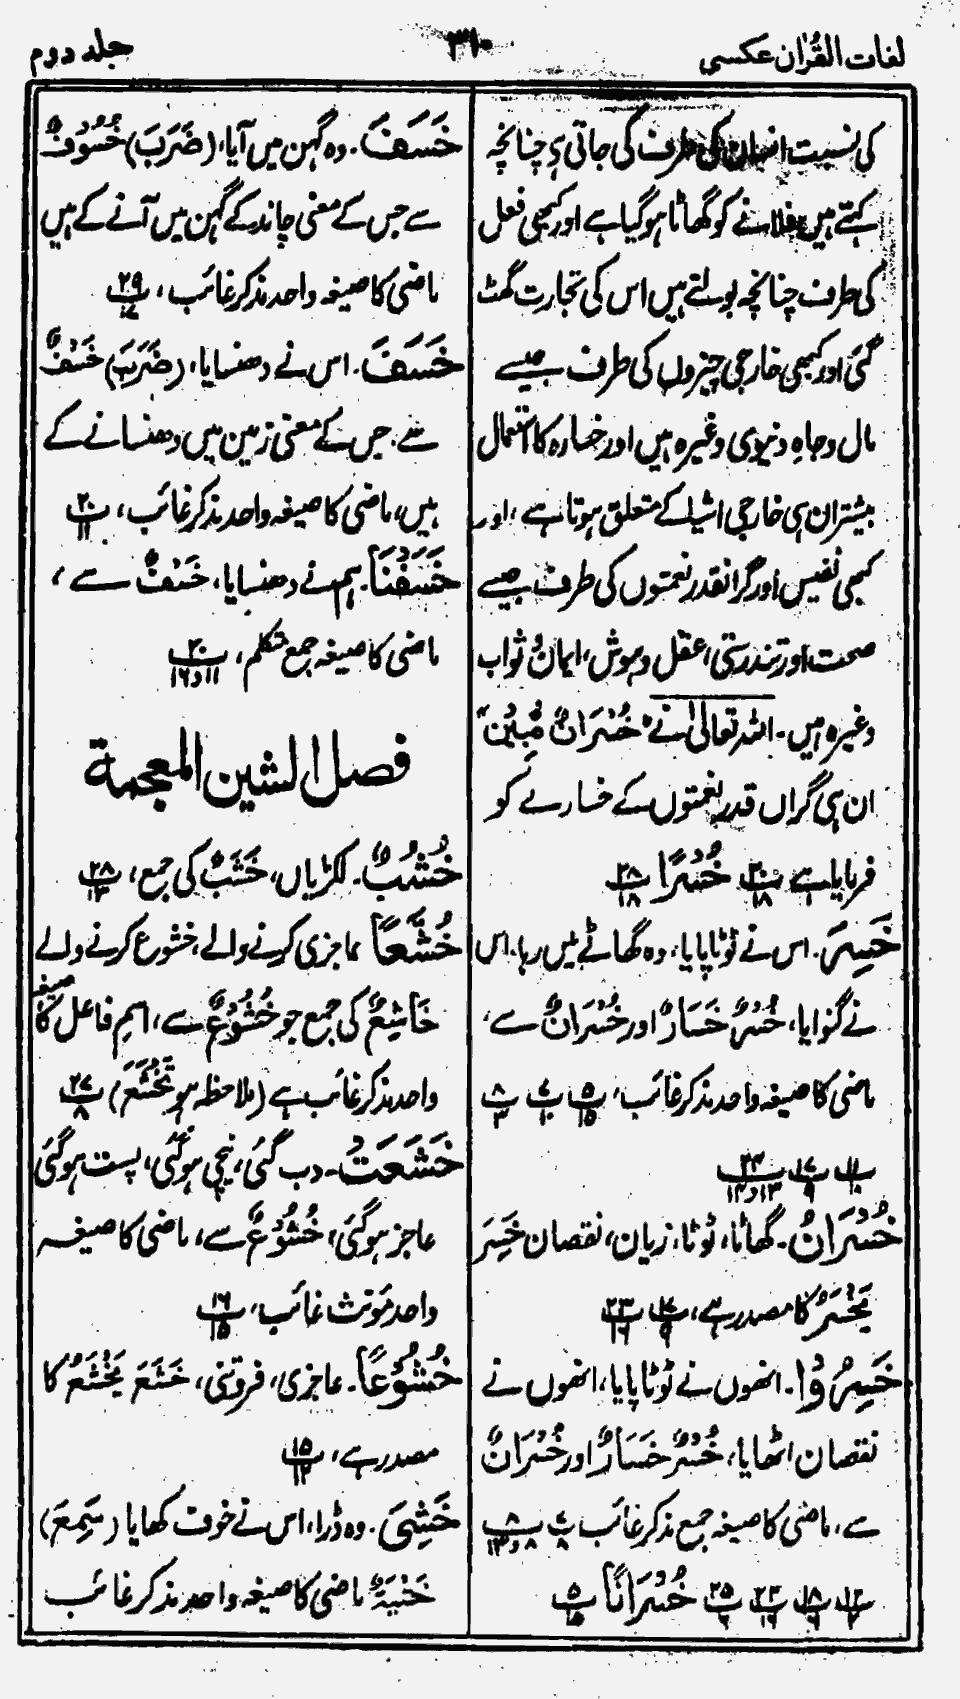 لغات القرآن عکسی
۳۱۰
جلد دوم
کی نسبت انسان کی طرف کی جاتی ہے چنانچہ
کہتے ہیں فلانے کو گھاٹا ہوگیا ہے اور کبھی فعل
کی طرف چنانچہ بولتے ہیں اس کی تجارت گھٹ
گئی اور کبھی خارجی چیزوں کی طرف جیسے
مال و جاہِ دنیوی وغیرہ ہیں اور خسارہ کا استعمال
بیشتر ان ہی خارجی اشیا کے متعلق ہوتا ہے، اور
کبھی نفیس اور گرانقدر نعمتوں کی طرف جیسے
صحت اور تندرستی، عقل و ہوش، ایمان و ثواب
وغیرہ ہیں۔ اللہ تعالیٰ نے "خُسْرَانٌ مُّبِیْنٌ"
ان ہی گراں قدر نعمتوں کے خسارے کو
فرمایا ہے خُسْرًا ۲۸/۱۸
خَسِرَ۔ اس نے ٹوٹا پایا، وہ گھاٹے میں رہا، اس
نے گنوایا، خُسْرٌ خَسَارٌ اور خُسْرَانٌ سے،
ماضی کا صیغہ واحد مذکر غائب،
خُسْرَانُ۔ گھاٹا، ٹوٹا، زیان، نقصان خَسِرَ
یَخْسَرُ کا مصدر ہے،
خَسِرُوْا۔ انھوں نے ٹوٹا پایا، انھوں نے
نقصان اٹھایا، خُسْرٌ خَسَارٌ اور خُسْرَانٌ
سے، ماضی کا صیغہ جمع مذکر غائب
خُسْرَانًا ۵/۱۵
خَسَفَ۔ وہ گہن میں آیا، (ضَرَبَ) خُسُوْفٌ
سے جس کے معنی چاند کے گہن میں آنے کے ہیں
ماضی کا صیغہ واحد مذکر غائب، ۲۹/۱۷
خَسَفَ۔ اس نے دھنسایا، (ضَرَبَ) خَسْفٌ
سے۔ جس کے معنی زمین میں دھنسانے کے
ہیں، ماضی کا صیغہ واحد مذکر غائب، ۲۰/۱۱
خَسَفْنَا۔ ہم نے دھنسایا، خَسْفٌ سے،
ماضی کا صیغہ جمع متکلم، ۲۰/۱۱ و ۱۶
فصل الشین المعجمة
خُشُبٌ۔ لکڑیاں، خَشَبٌ کی جمع، ۲۸/۱۳
خُشَّعًا عاجزی کرنے والے، خشوع کرنے والے
خَاشِعٌ کی جمع جو خُشُوْعٌ سے، اسمِ فاعل کا صیغہ
واحد مذکر غائب ہے (ملاحظہ ہو تَخْشَعَ) ۲۷/۸
خَشَعَتْ۔ دب گئی، نیچی ہوگئی، پست ہوگئی
عاجز ہوگئی، خُشُوْعٌ سے، ماضی کا صیغہ
واحد مؤنث غائب، ۱۶/۱۵
خُشُوْعًا۔ عاجزی، فروتنی، خَشَعَ یَخْشَعُ کا
مصدر ہے، ۱۵/۱۲
خَشِیَ۔ وہ ڈرا، اس نے خوف کھایا (سَمِعَ)
خَشْیَةٌ ماضی کا صیغہ واحد مذکر غائب